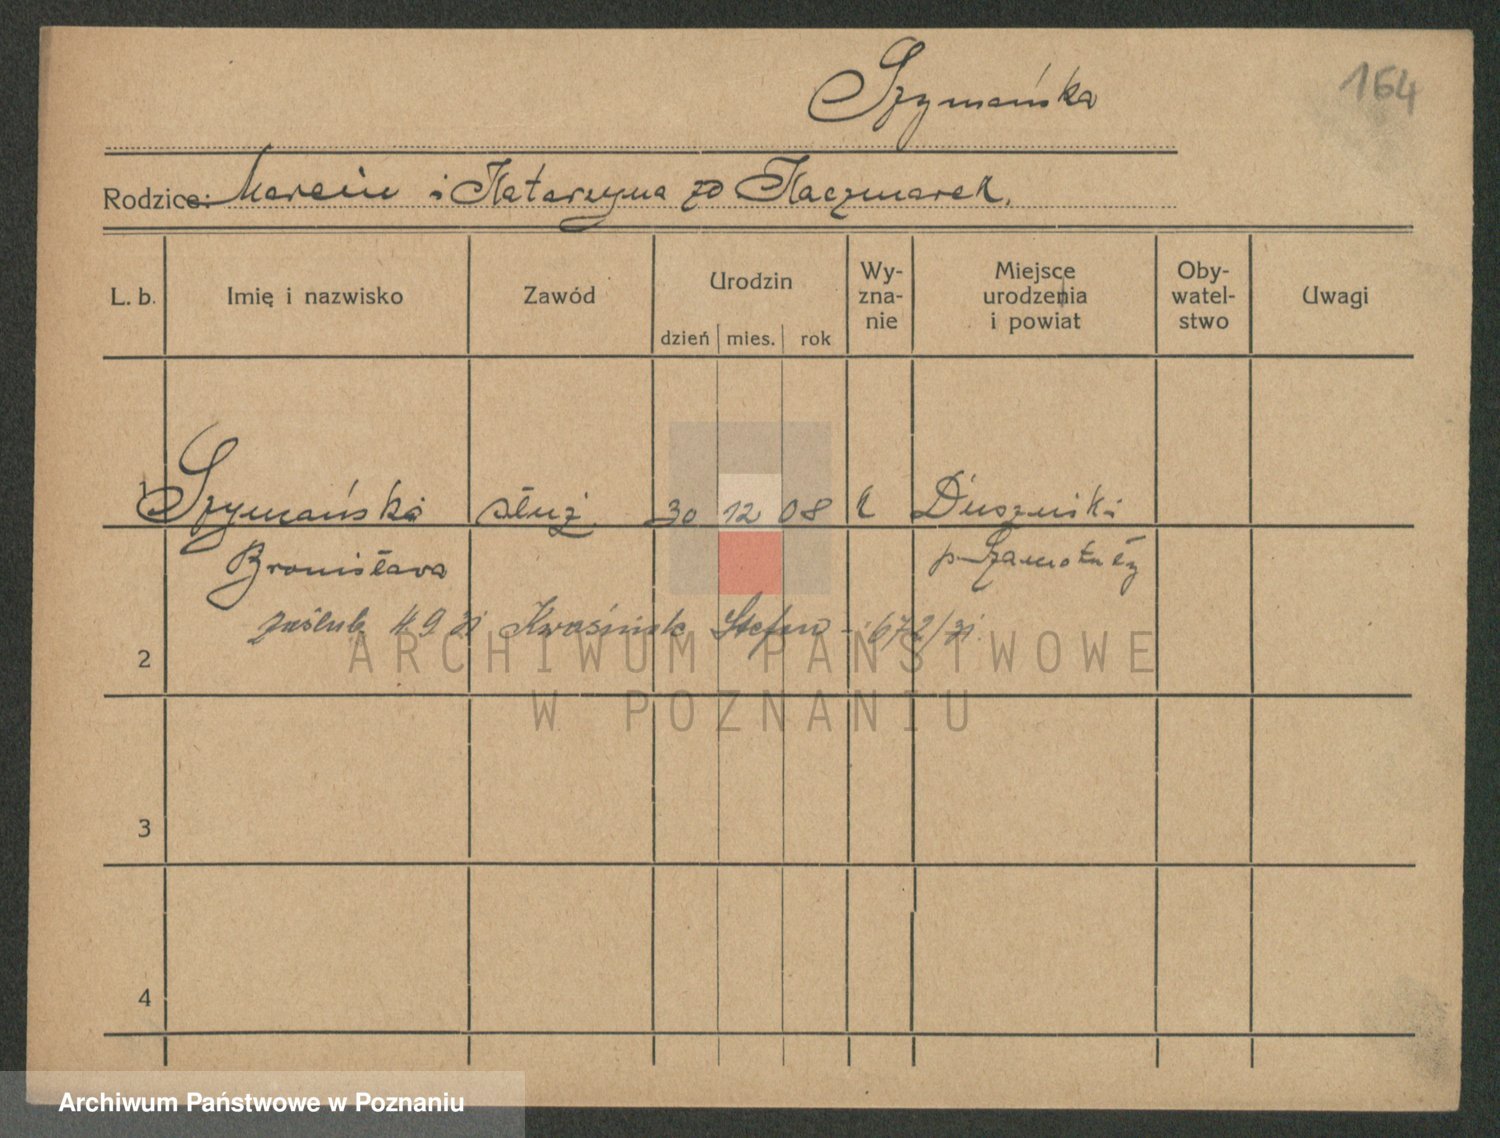 Szymańska
164
Rodzice: Marcin i Katarzyna zd Kaczmarek.
L. b. Imię i nazwisko Zawód Urodzin dzień mies. rok Wy-zna-nie Miejsce urodzenia i powiat Oby-watel-stwo Uwagi
1 Szymańska służ. 30 12 08 k Duszniki
Bronisława p. Szamotuły
zaślub. 4.9 31 Kwaśniak Stefan - 672/31
2
ARCHIWUM PAŃSTWOWE
W POZNANIU
3
4
Archiwum Państwowe w Poznaniu